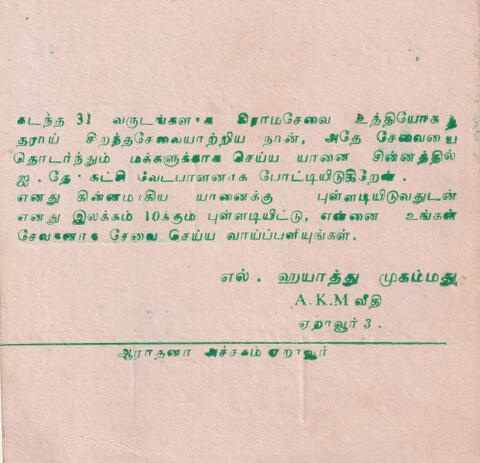 கடந்த 31 வருடங்களாக கிராமசேவை உத்தியோகத்
தராய் சிறந்தசேவையாற்றிய நான், அதே சேவையை
தொடர்ந்தும் மக்களுக்காக செய்ய யானை சின்னத்தில்
ஐ.தே.கட்சி வேட்பாளனாக போட்டியிடுகிறேன்.
எனது சின்னமாகிய யானைக்கு புள்ளடியிடுவதுடன்
எனது இலக்கம் 10க்கும் புள்ளடியிட்டு, என்னை உங்கள்
சேவகனாக சேவை செய்ய வாய்ப்பளியுங்கள்.
எல். ஹயாத்து முகம்மது
A.K.M வீதி
ஏறாவூர் 3.
ஆராதனா அச்சகம் ஏறாவூர்